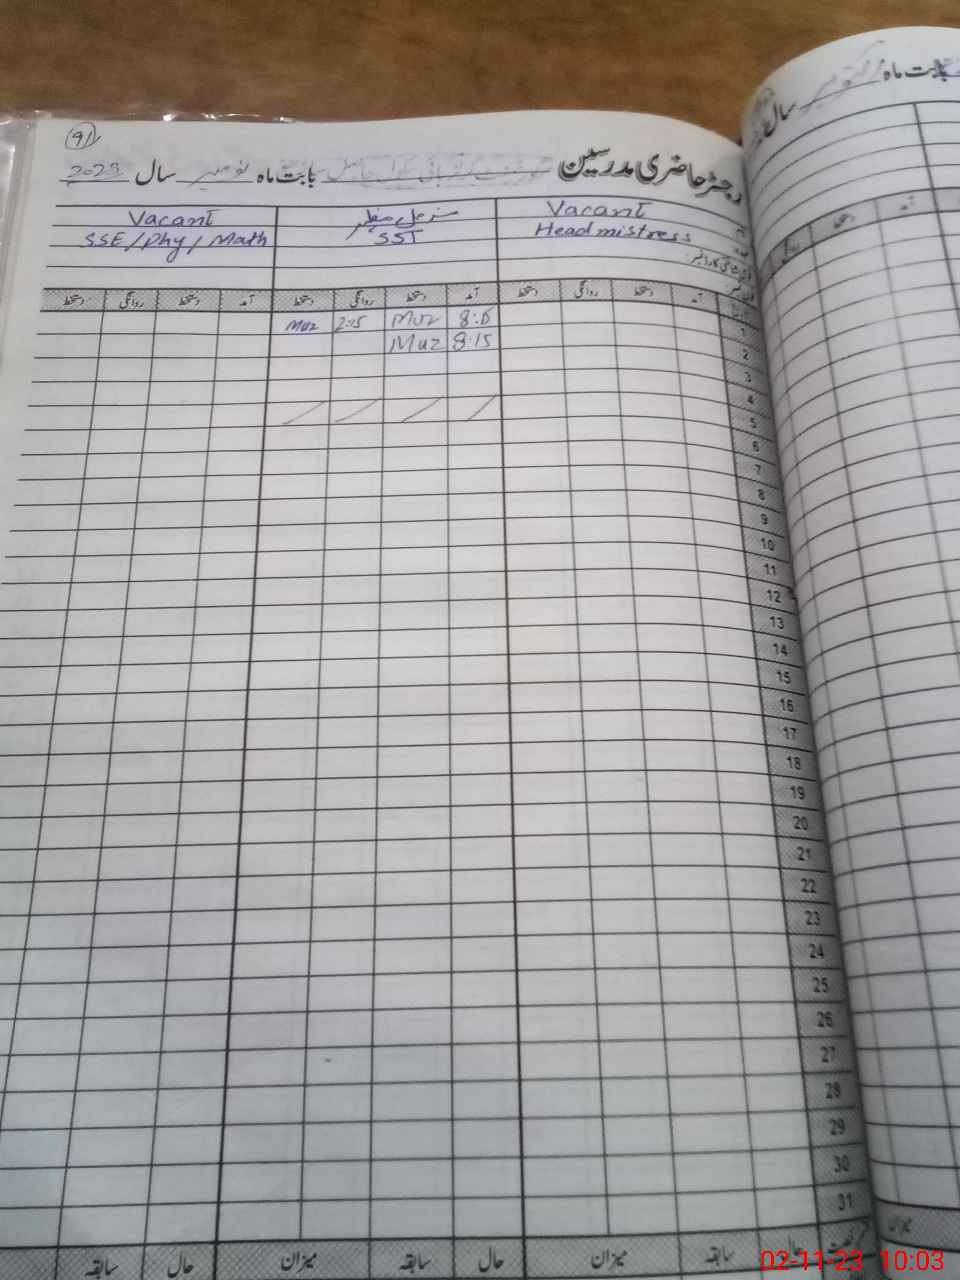 91
رجسٹر حاضری مدرسین بابت ماہ نومبر سال 2023
Vacant
Headmistress
SST
Vacant
SSE/Phy/Math
آمد دستخط روانگی دستخط آمد دستخط روانگی دستخط آمد دستخط روانگی دستخط
1 8:15 Muz 2:15 Muz
2 8:15 Muz
3
4
5
6
7
8
9
10
11
12
13
14
15
16
17
18
19
20
21
22
23
24
25
26
27
28
29
30
31
حال سابقہ میزان حال سابقہ میزان حال سابقہ
بابت ماہ سال
آمد دستخط
میزان
02-11-23 10:03